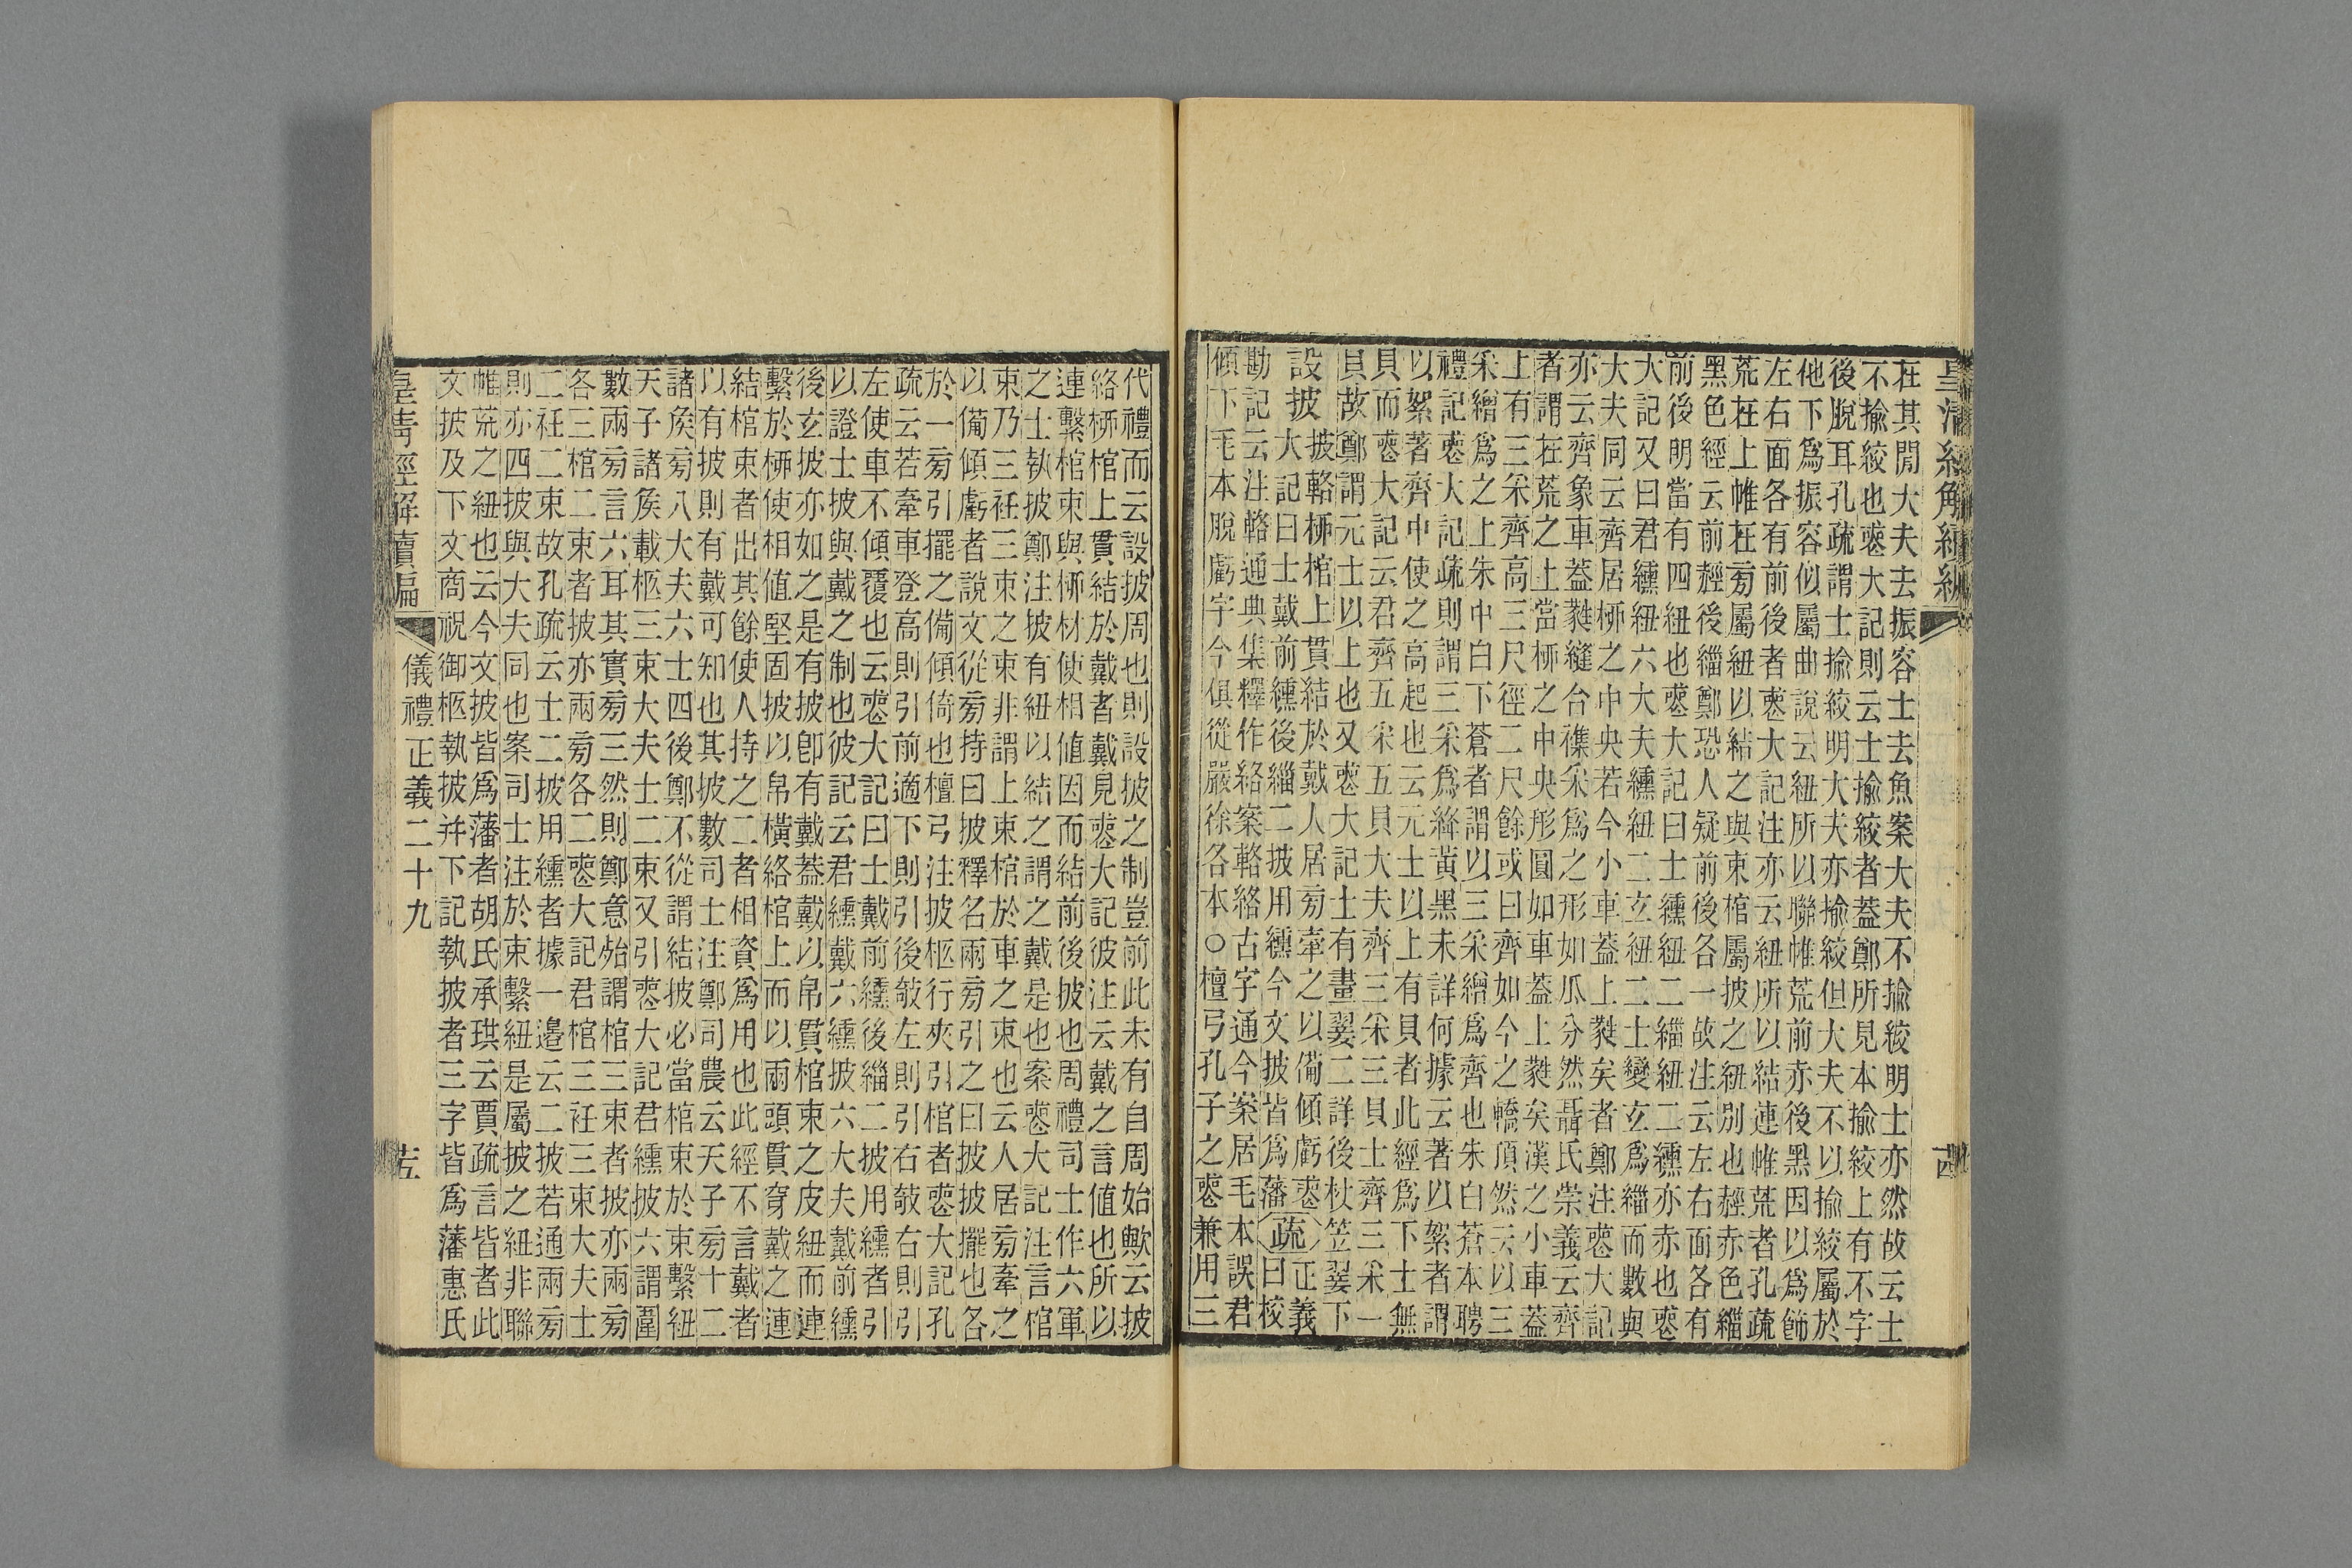 在其閒大夫去振容士去魚案大夫不揄絞明士亦然故云士
不揄絞也喪大記則云士揄絞者蓋鄭所見本揄絞上有不字
後脫耳孔疏謂士揄絞明大夫亦揄絞但大夫不以揄絞屬於
他下爲振容似屬曲說云紐所以聯帷荒前赤後黑因以爲飾
左右面各有前後者喪大記注亦云紐所以結連帷荒者孔疏
荒在上帷在旁屬紐以結之與束棺屬披之紐別也赬赤色緇
黑色經云前赬後緇鄭恐人疑前後各一故注云左右面各有
前後明當有四紐也喪大記曰士纁紐二緇紐二纁亦赤也喪
大記又曰君纁紐六大夫纁紐二玄紐二士變玄爲緇而數與
大夫同云齊居柳之中央若今小車蓋上蕤矣者鄭注喪大記
亦云齊象車蓋蕤縫合襍采爲之形如瓜分然聶氏崇義云齊
者謂在荒之上當柳之中央形圓如車蓋上蕤矣漢之小車蓋
上有三采齊高三尺徑二尺餘或曰齊如今之轎頂然云以三
采繒爲之上朱中白下蒼者謂以三采繒爲齊也朱白蒼本聘
禮記喪大記疏則謂三采爲絳黃黑未詳何據云著以絮者謂
以絮著齊中使之高起也云元士以上有貝者此經爲下士無
貝而喪大記云君齊五采五貝大夫齊三采三貝士齊三采一
貝故鄭謂元士以上也又喪大記士有畫翣二詳後杖笠翣下
設披
披輅柳棺上貫結於戴人居旁牽之以備傾虧喪
大記曰士戴前纁後緇二披用纁今文披皆爲藩
疏
正義
曰校
勘記云注輅通典集釋作絡案輅絡古字通今案居毛本誤君
傾下毛本脫虧字今俱從嚴徐各本○檀弓孔子之喪兼用三
代禮而云設披周也則設披之制豈前此未有自周始歟云披
絡柳棺上貫結於戴者戴見喪大記彼注云戴之言值也所以
連繫棺束與柳材使相值因而結前後披也周禮司士作六軍
之士執披鄭注披有紐以結之謂之戴是也案喪大記注言棺
束乃三衽三束之束非謂上束棺於車之束也云人居旁牽之
以備傾虧者說文從旁持曰披釋名兩旁引之曰披披擺也各
於一旁引擺之備傾倚也檀弓注披柩行夾引棺者喪大記孔
疏云若牽車登高則引前適下則引後敧左則引右敧右則引
左使車不傾覆也云喪大記曰士戴前纁後緇二披用纁者引
以證士披與戴之制也彼記云君纁戴六纁披六大夫戴前纁
後玄披亦如之是有披卽有戴蓋戴以帛貫棺束之皮紐而連
繫於柳使相值堅固披以帛橫絡棺上而以兩頭貫穿戴之連
結棺束者出其餘使人持之二者相資爲用也此經不言戴者
以有披則有戴可知也其披數司士注鄭司農云天子旁十二
諸侯旁八大夫六士四後鄭不從謂結披必當棺束於束繫紐
天子諸侯載柩三束大夫士二束又引喪大記君纁披六謂圍
數兩旁言六耳其實旁三然則鄭意殆謂棺三束者披亦兩旁
各三棺二束者披亦兩旁各二喪大記君棺三衽三束大夫士
二衽二束故孔疏云士二披用纁者據一邊云二披若通兩旁
則亦四披與大夫同也案司士注於束繫紐是屬披之紐非聯
帷荒之紐也云今文披皆爲藩者胡氏承珙云賈疏言皆者此
文披及下文商祝御柩執披幷下記執披者三字皆爲藩惠氏
皇清經解續編
儀禮正義二十九